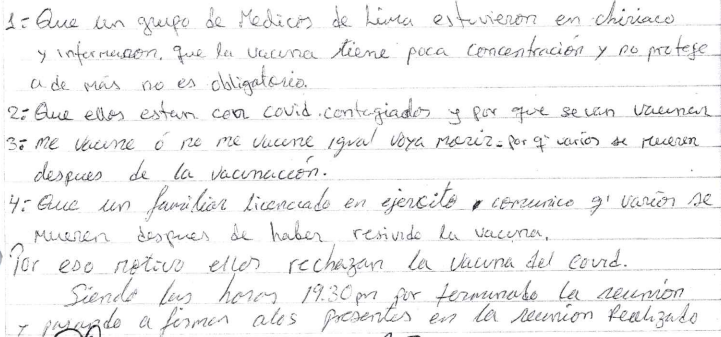 1:- Que un grupo de Medicos de Lima estuvieron en chiriaco
y informaron. que la vacuna tiene poca concentración y no protege
a de más no es obligatorio.
2:- Que ellos estan con covid. contagiados y por que se van vacunar
3:- me vacune ó no me vacune igual voya morir. por q' varios se mueren
despues de la vacunacción.
4:- Que un familiar licenciado en ejercito, comunico q' varios se
mueren despues de haber resivido la vacuna.
Por eso motivo ellos rechazan la vacuna del covid.
Siendo las horas 19:30 pm por terminado la reunión
y pasando a firmar alos presentes en la reunion Realizado